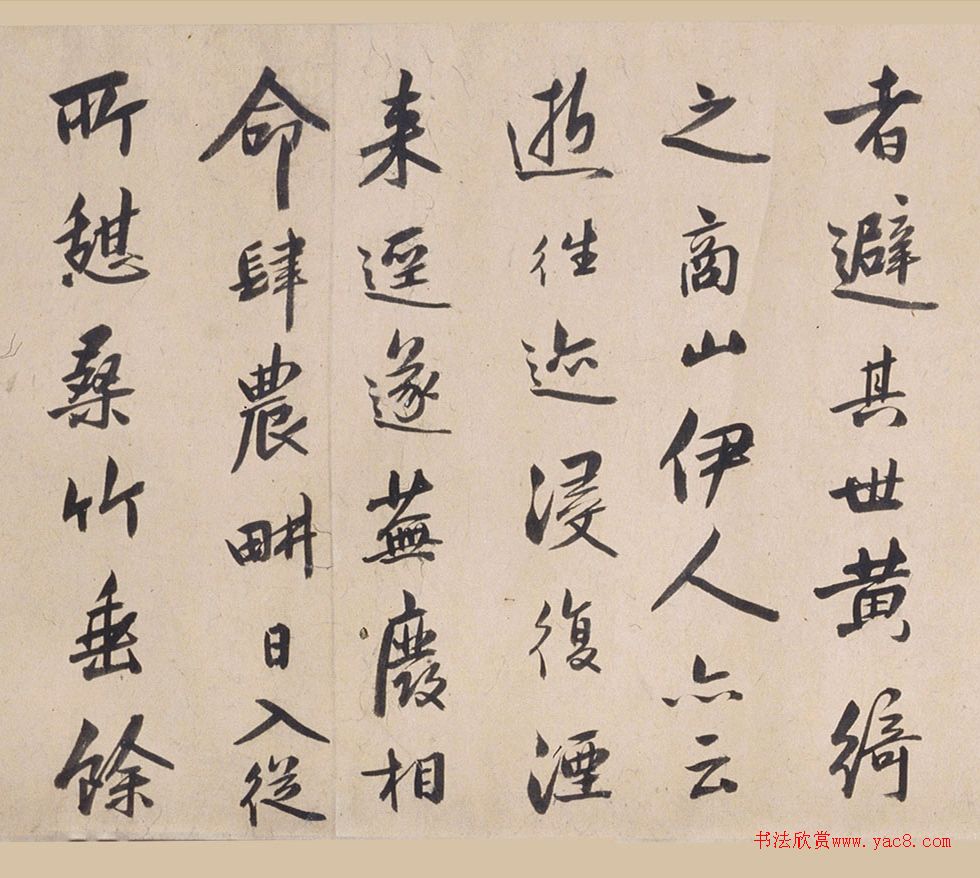 者避其世黄綺
之商山伊人亦云
逝往迹浸復湮
来逕遂蕪廢相
命肆農耕日入從
所憇桑竹垂餘
书法欣赏www.yac8.com